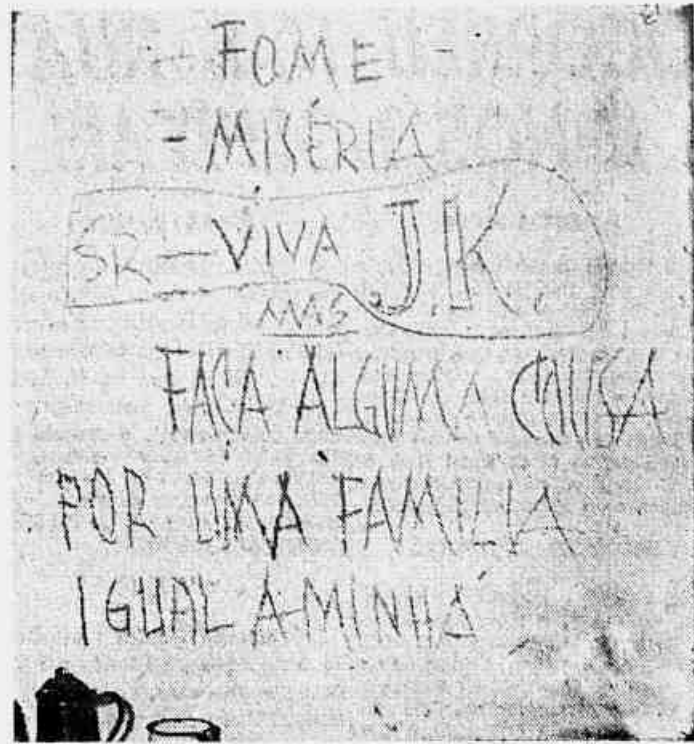 - FOME -
- MISÉRIA
SR — VIVA J.K.
MAS
FAÇA ALGUMA COUSA
POR UMA FAMILIA
IGUAL A MINHA